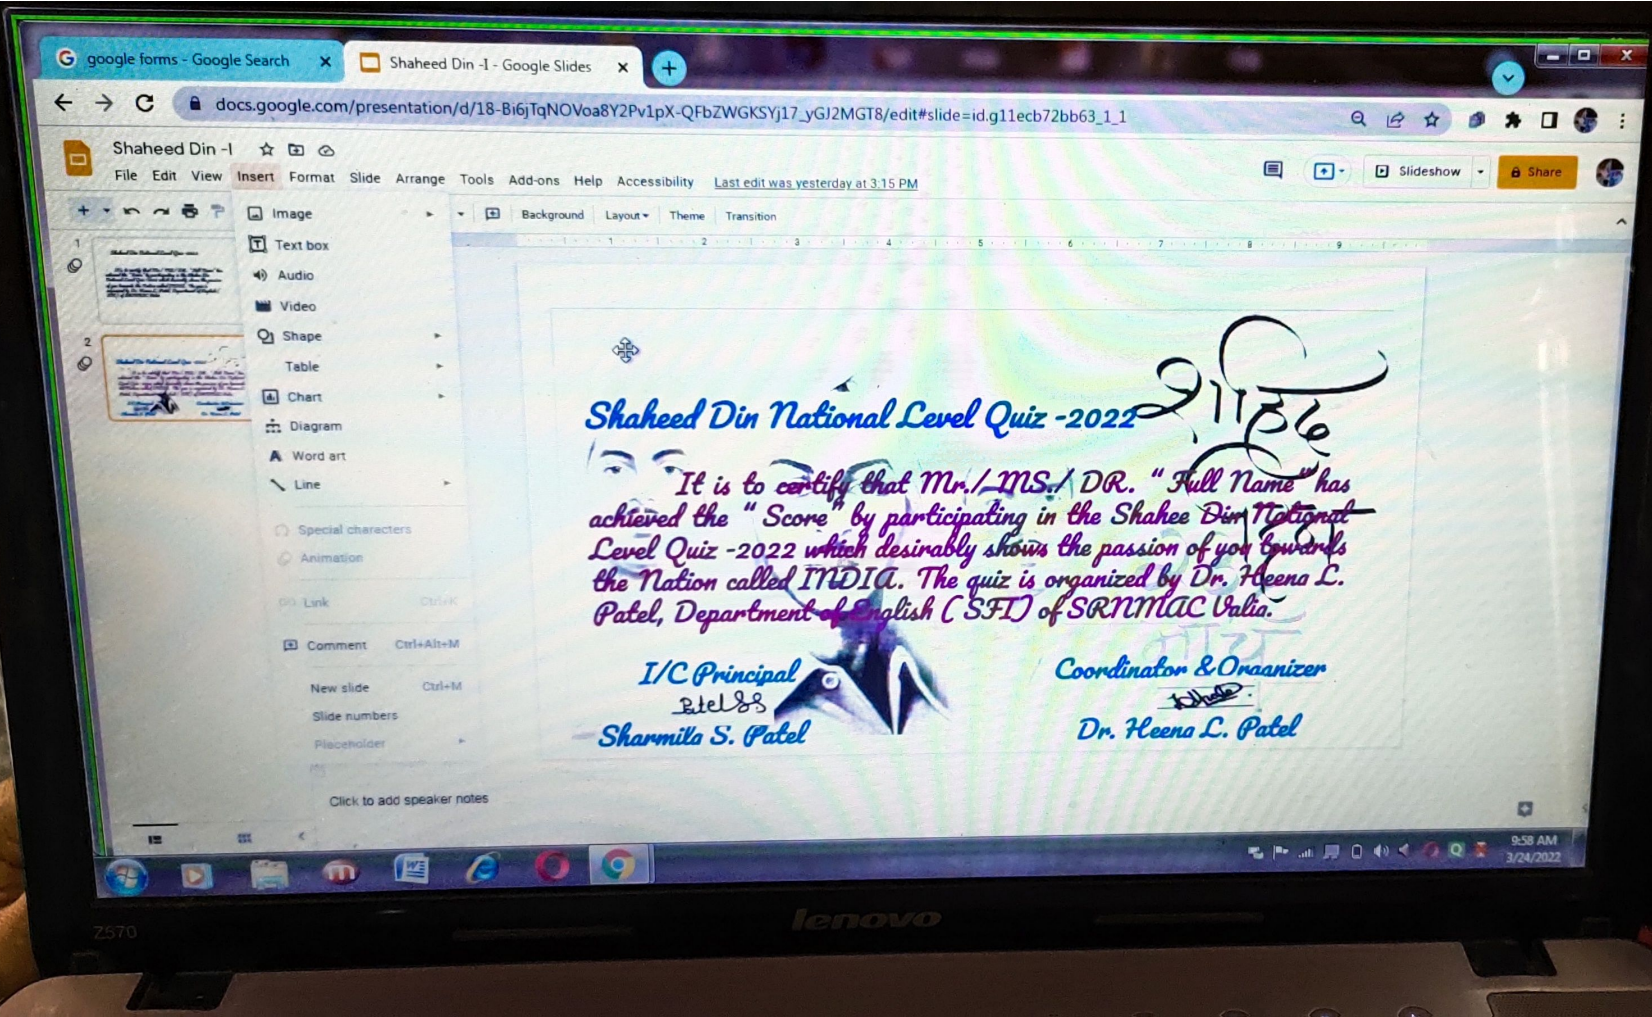 google forms - Google Search
Shaheed Din -I - Google Slides
docs.google.com/presentation/d/18-Bi6jTqNOVoa8Y2Pv1pX-QFbZWGKSYj17_yGJ2MGT8/edit#slide=id.g11ecb72bb63_1_1
Shaheed Din -I
File Edit View Insert Format Slide Arrange Tools Add-ons Help Accessibility Last edit was yesterday at 3:15 PM
Slideshow Share
Background Layout Theme Transition
1 2 3 4 5 6 7 8 9
1
2
Image
Text box
Audio
Video
Shape
Table
Chart
Diagram
Word art
Line
Special characters
Animation
Link Ctrl+K
Comment Ctrl+Alt+M
New slide Ctrl+M
Slide numbers
Placeholder
शहिद
Shaheed Din National Level Quiz -2022
It is to certify that Mr./ MS./ DR. “ Full Name” has
achieved the “ Score” by participating in the Shahee Din National
Level Quiz -2022 which desirably shows the passion of you towards
the Nation called INDIA. The quiz is organized by Dr. Heena L.
Patel, Department of English ( SFI) of SRNMAC Valia.
I/C Principal
Patel SS
Sharmila S. Patel
Coordinator & Organizer
Dr. Heena L. Patel
Click to add speaker notes
9:58 AM
3/24/2022
lenovo
Z570